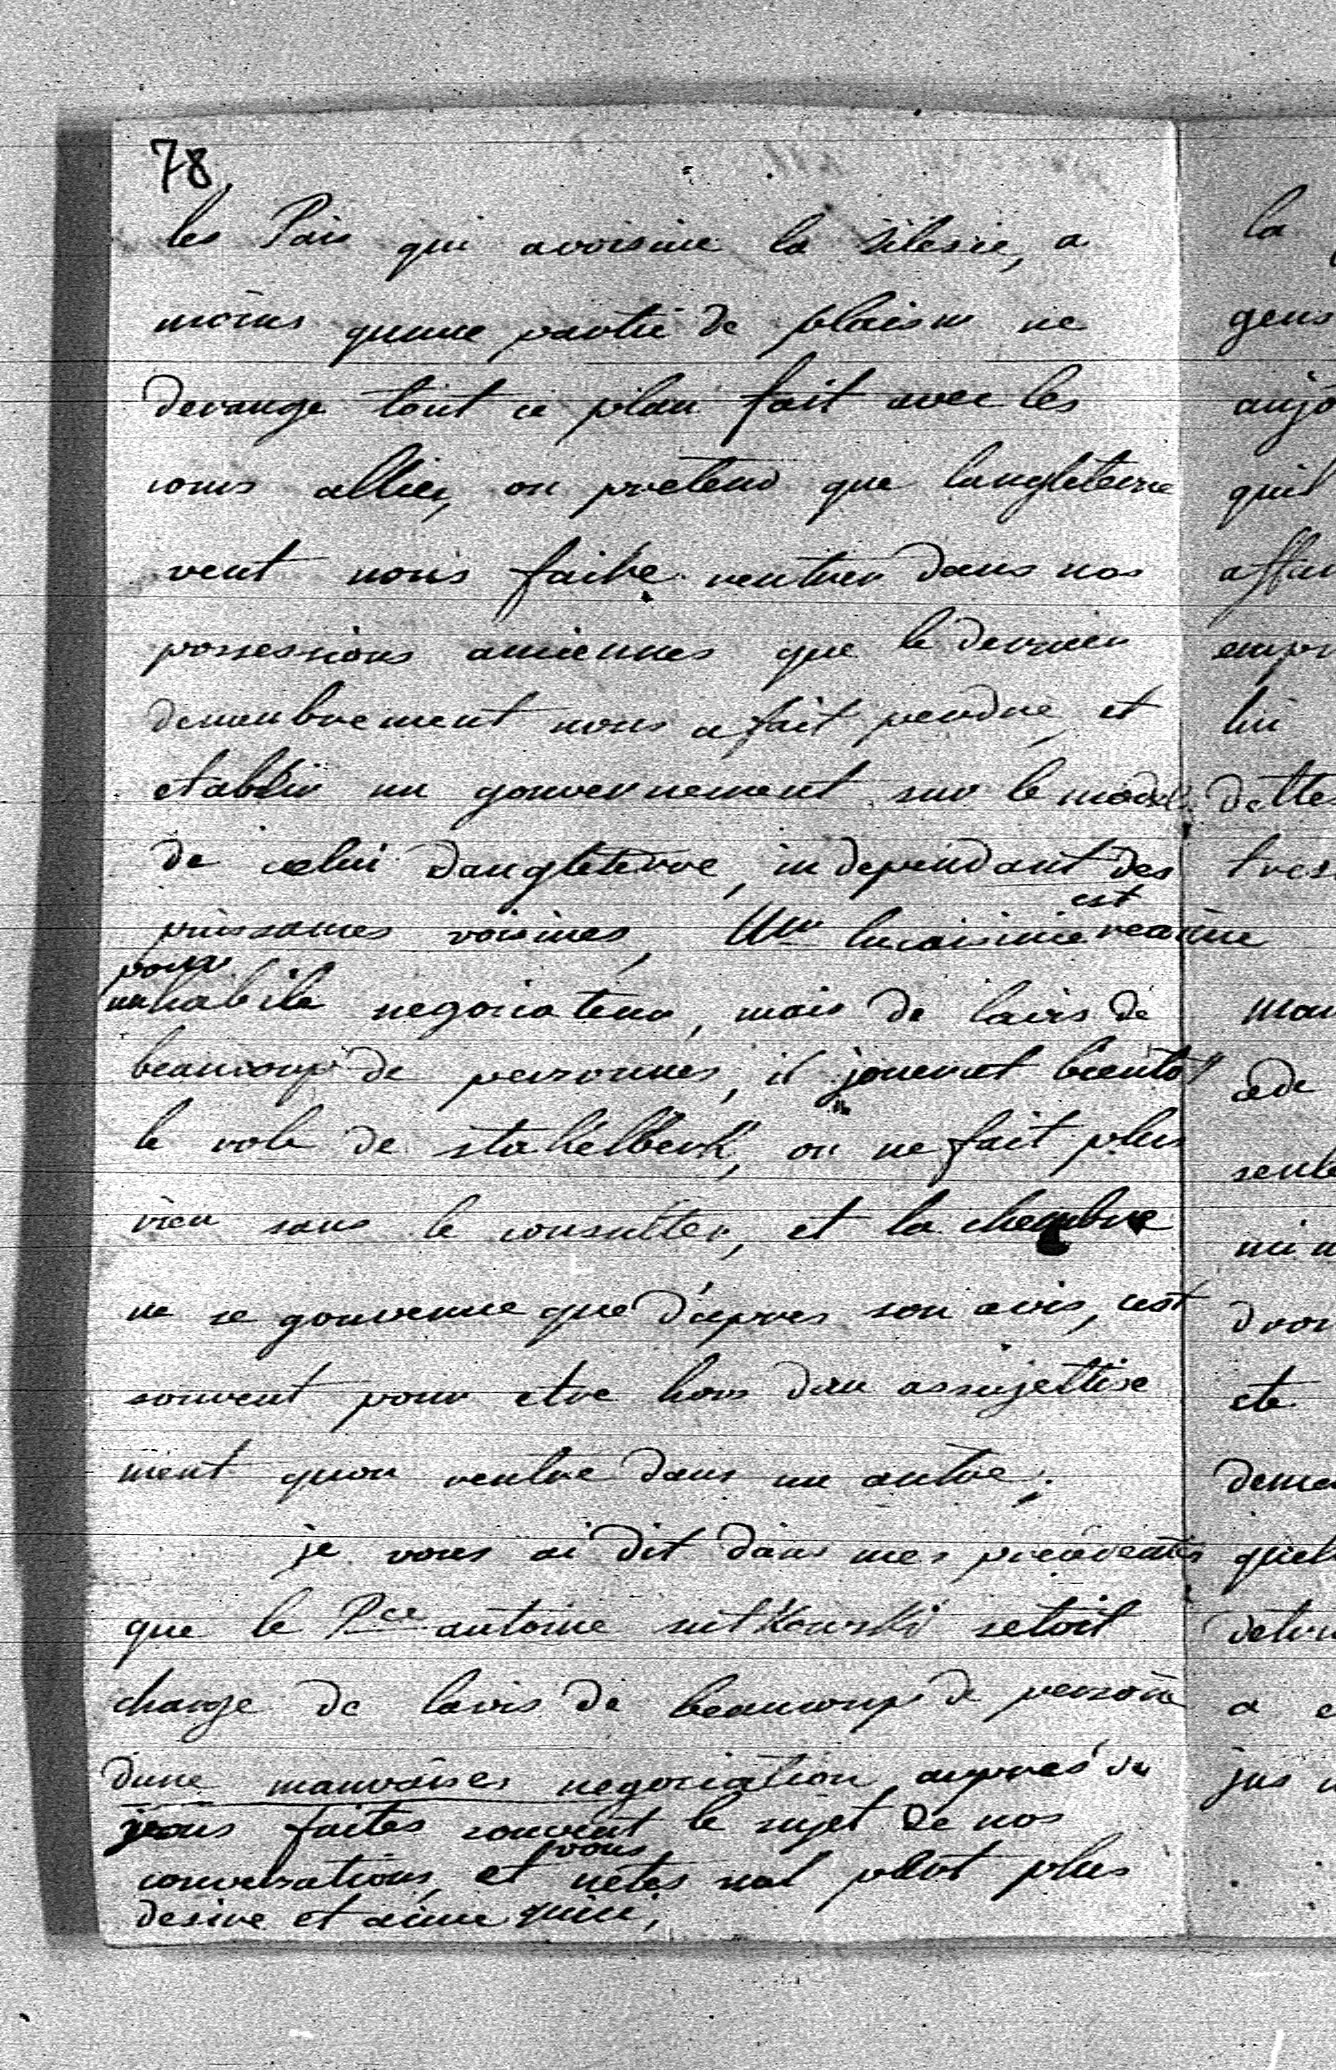 78
les Pais qui avoisine la silesie, a
moins quune partie de plaisir ne
derange tout ce plan fait avec les
cours alliez, on pretend que langleterre
veut nous faire rentrer dans nos
possessions anciennes que le dernier
demanbrement nous a fait perdre, et
etablir un gouvernement sur le model
de celui dangleterre, independant des
puissances voisines, Mr lucaisinie est
pour
un habile negociateur, mais de lavis de
beaucoup de personnes, il jouerat bientot
le role de stakelberk, on ne fait plus
rien sans le consulter, et la chembre
ne se gouverne que d'apres son avis, cest
souvent pour etre hors dun assujettise
ment quon rentre dans un autre;
je vous ai dit dans mes
que le Pce antoine sutkowski setoit
charge de lavis de beaucoup de person
dune mauvaises negociation aupres du
vous faites souvent le sujet de nos
conversations, et vous netes nul part plus
desire et aime quici,
la
gens
aujo
quil
affai
empr
lui
dette
tres
mon
ade
seule
droi
ete
a